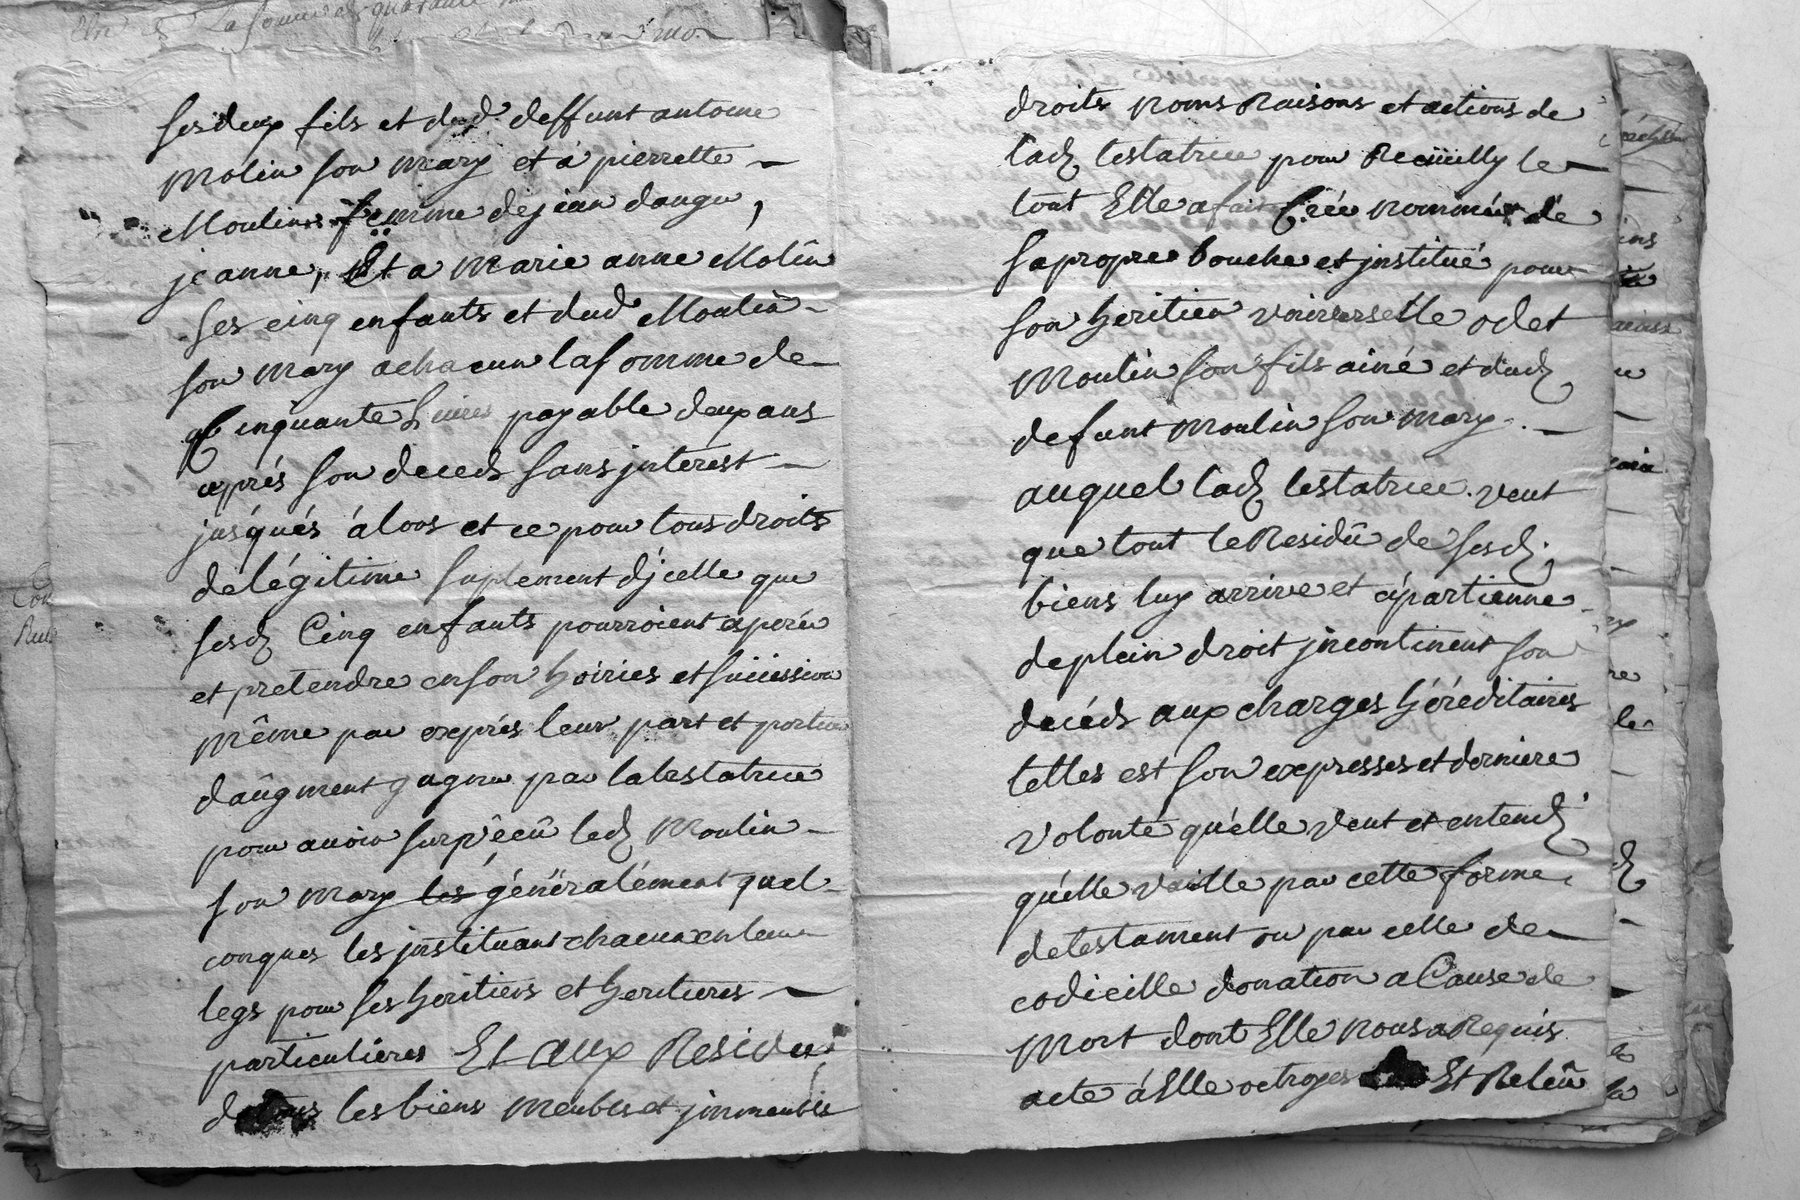 ses deux fils et dud deffunt antoine
Molin son mary et à pierrette
Moulin femme de jean dangu,
jeanne, Et a Marie anne Molin
ses cinq enfants et dud Moulin
son mary a chacun la somme de
Cinquante livres payable deux ans
aprés son deceds sans jnterest
jusqués á lors et ce pour tous droits
de légitime suplement djcelle que
sesd Cinq enfants pourroient esperer
et pretendre en son hoiries et succession
même par exprés leur part et portion
daûgment gagnee par la testatrice
pour avoir survêcû led Moulin
son mary les généralement quel
conques les jnstituant chacun en leur
legs pour ses heritiers et heritieres
particulieres Et aux Residu
de tous les biens meubles et jmmeubles
droits noms Raisons et actions de
lad testatrice pour Recüeilly le
tout Elle a fait Créé nommée dé
sa propre bouche et jnstitué pour
son heritier vniverselle odet
Moulin son fils ainé et dud
defunt Moulin son mary
auquel lad testatrice veut
que tout le Residû de sesd
biens luy arrive et apartienne
de plein droit jncontinent son
decéds aux charges héréditaires
telles est son expresses et derniere
volonté quelle veut et entend
quélle vaille par cette forme
de testament ou par celle de
codicille donation a Cause de
Mort dont Elle nous a Requis
acte á Elle octroyes Et Releû